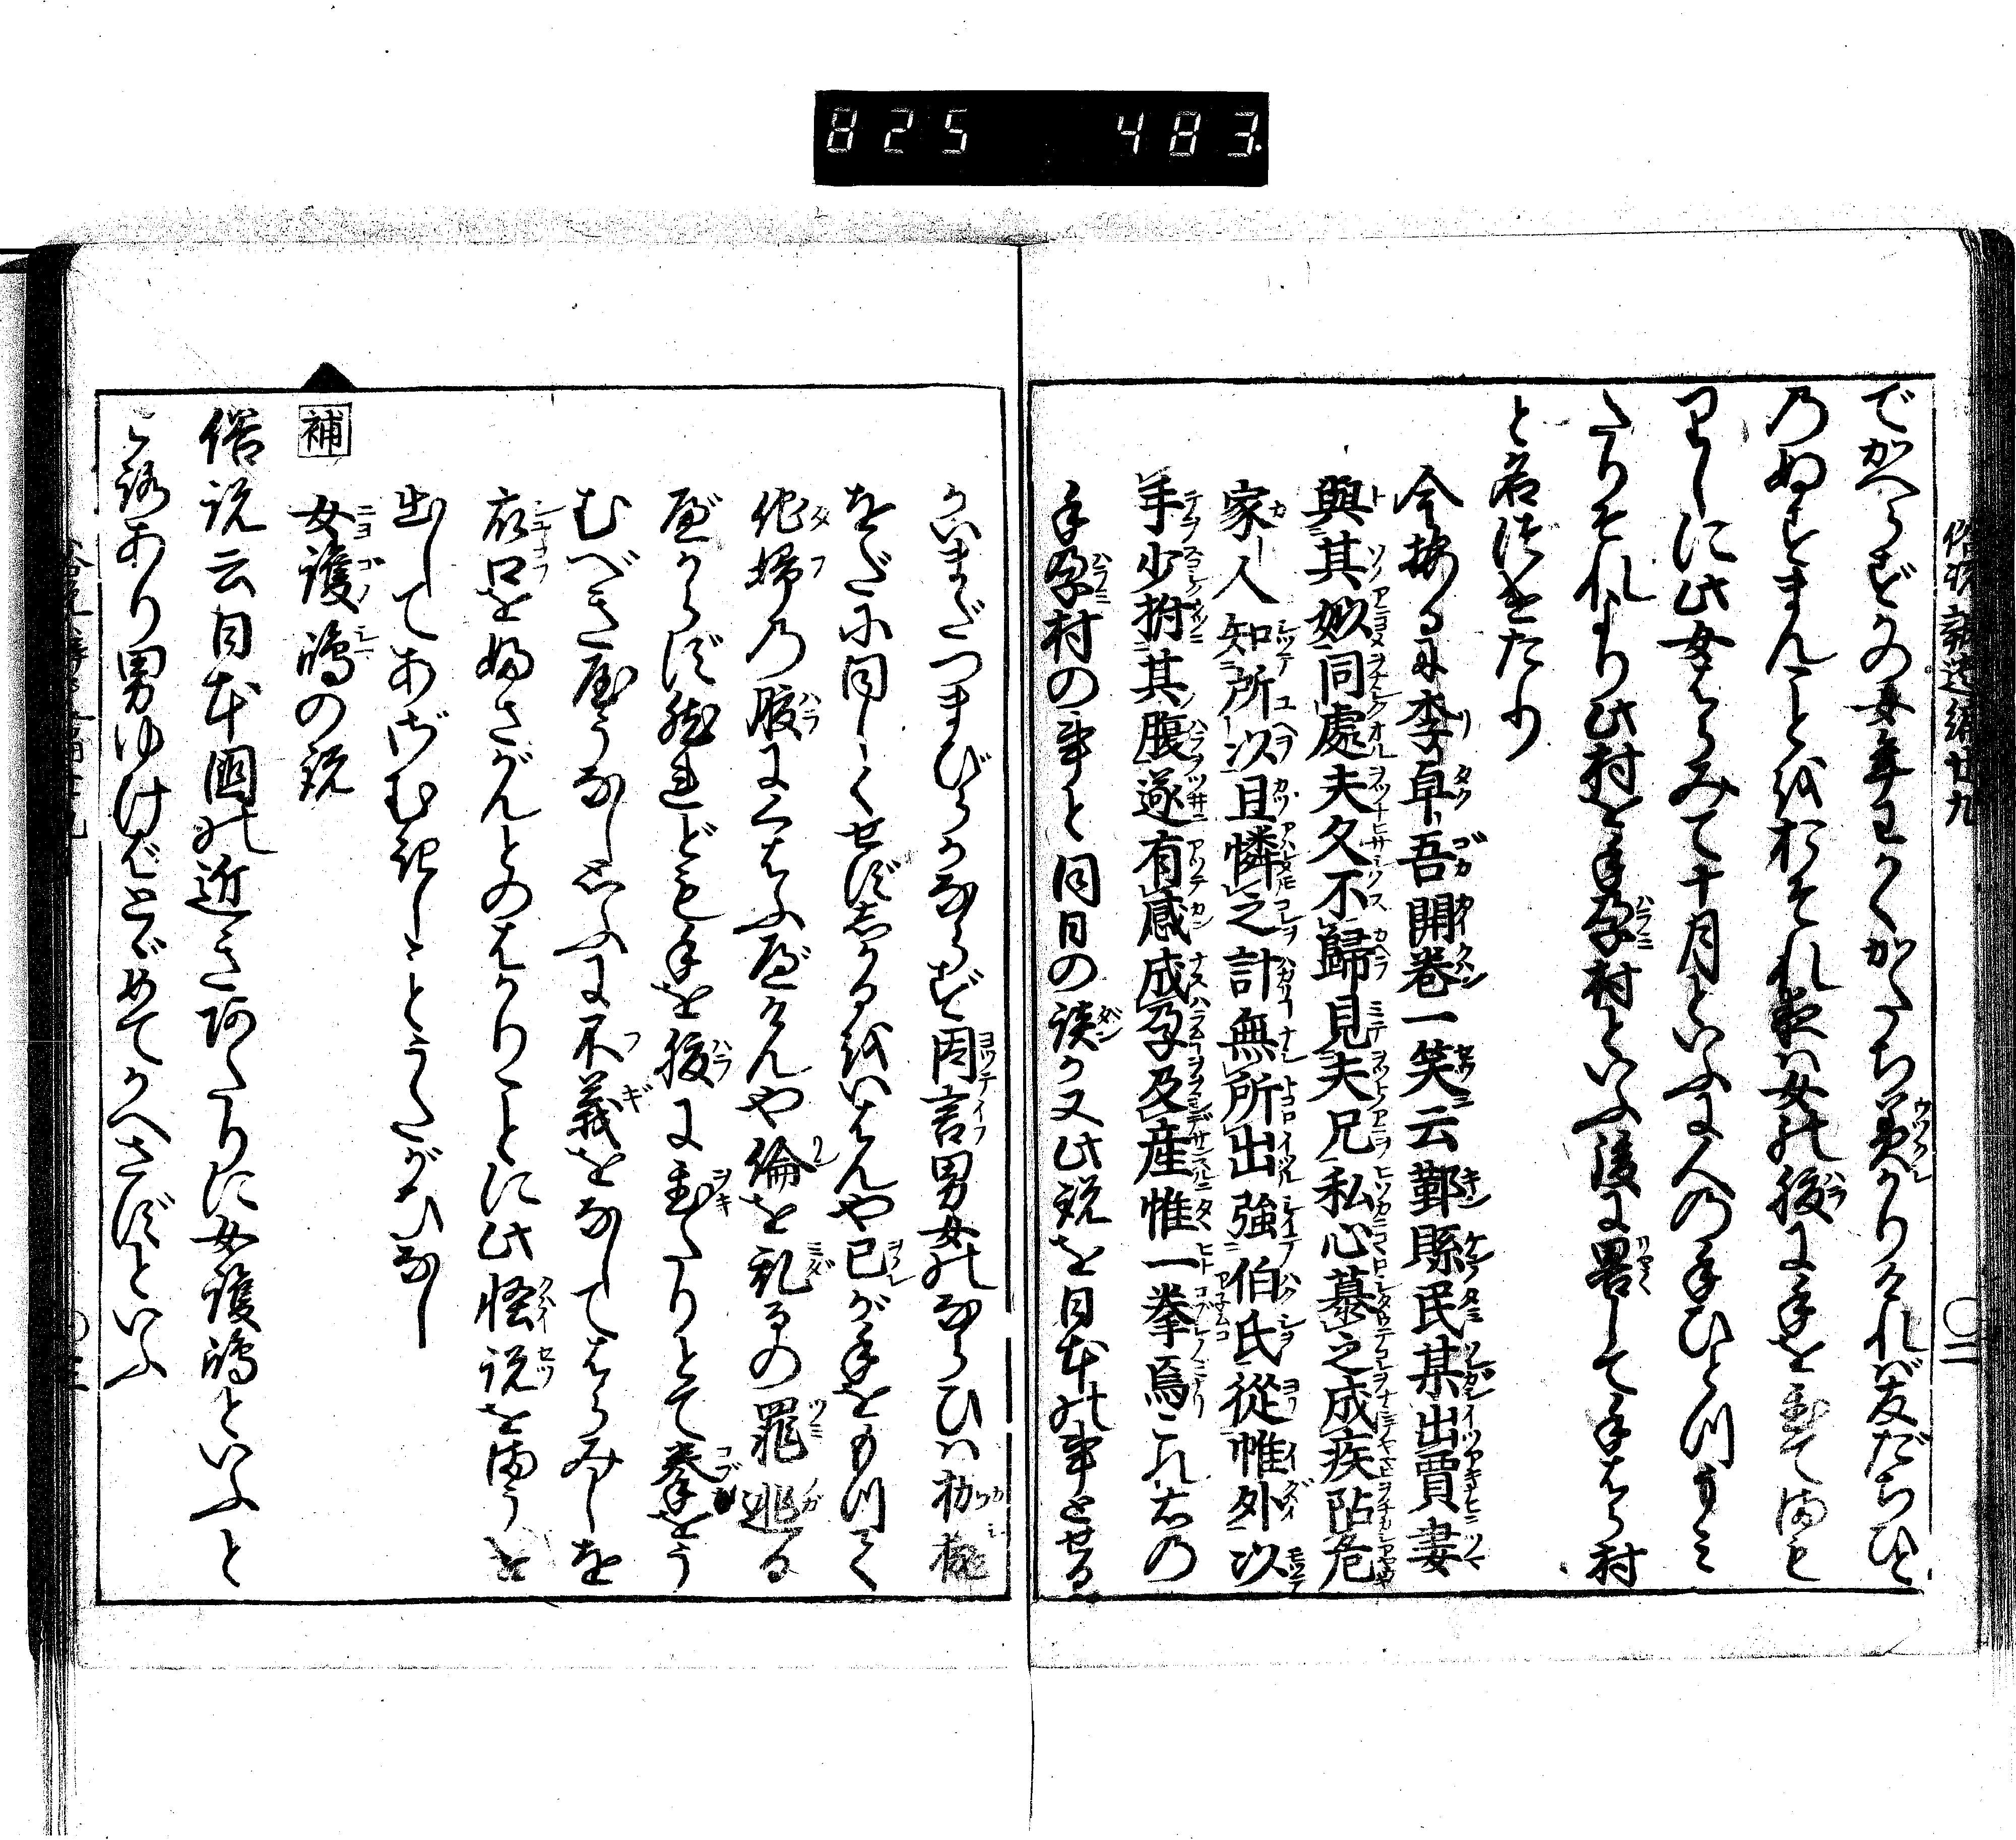 825 483
俗説辨遺編廿九
でかへらずその女年わかくかたち美かりければ友だちひと
のぬすまんことをおそれ夜は女の腹に手を置てまも
りしに此女はらみて十月といふに人の手ひとつうみ
たりそれより此村を手孕村といふ後に畧して手はら村
と名づけたり
今按るに李卓吾開巻一笑云鄞縣民某出賈妻
與其姒同處夫久不歸見夫兄私心慕之成疾阽危
家人知所以且憐之計無所出強伯氏從帷外以
手少拊其腹遂有感成孕及産惟一拳焉これ右の
手孕村の事と同日の談か又此説を日本の事とせる
かいまだつまびらかならず因言男女のならひは
をだに同じくせずあるをいはんや己が手をもつて
他婦の腹にくはふべけんや倫を乱るの罪逃る
べからず然れども手を腹に置たりとて拳をう
むべき理なし思ふに不義をなしてはらみしを
衆口を ふさがんとのはかりことに此怪説をまうけ
出してあざむきしことうたがひなし
補 女護嶋の説
俗説云日本國の近きあたりに女護嶋といふと
ころあり男ゆけばとどめてかへさずといふ